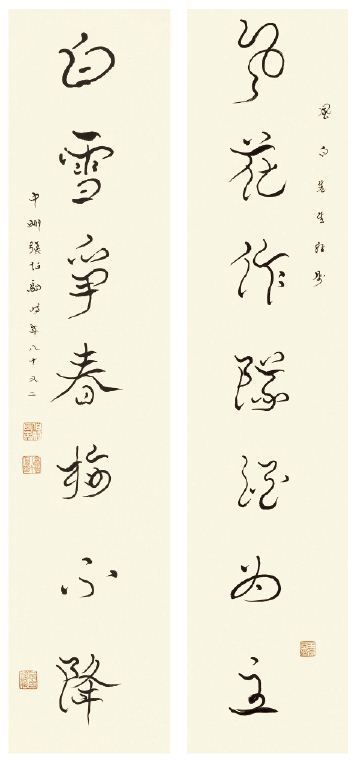 風白先生雅屬
風花作隊為主
白雪爭春梅不降
中州張伯駒時年八十又二